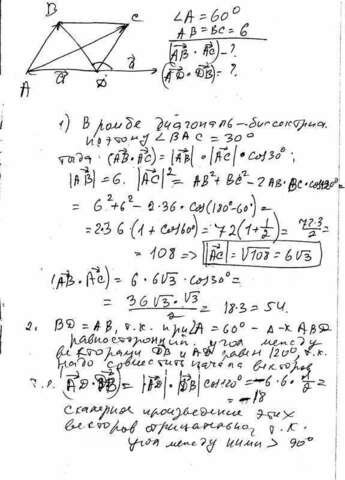 B C
∠A = 60°
AB = BC = 6
(AB⃗ · AC⃗) - ?
(AD⃗ · DB⃗) = ?
A a⃗ D a⃗
1) В ромбе диагональ - биссектриса
поэтому ∠BAC = 30°
тогда (AB⃗·AC⃗) = |AB⃗| · |AC⃗| · cos30°;
|AB⃗| = 6. |AC⃗|² = AB² + BC² - 2AB·BC·cos120° =
= 6² + 6² - 2·36 · cos(180°-60°) =
= 2·36 (1 + cos60°) = 72(1+1/2) = 72·3/2 =
= 108 => |AC⃗| = √108 = 6√3
(AB⃗·AC⃗) = 6 · 6√3 · cos30° =
= 36√3 · √3/2 = 18·3 = 54.
2. BD = AB, т.к. при ∠A = 60° - Δ-к ABD
равносторонний. угол между
векторами DB и AD равен 120°, т.к.
надо совместить начала векторов
т.е. (AD⃗ · DB⃗) = |AD⃗| · |DB⃗| cos120° = -6·6·1/2 =
= -18
скалярное произведение этих
векторов отрицательно, т.к.
угол между ними > 90°